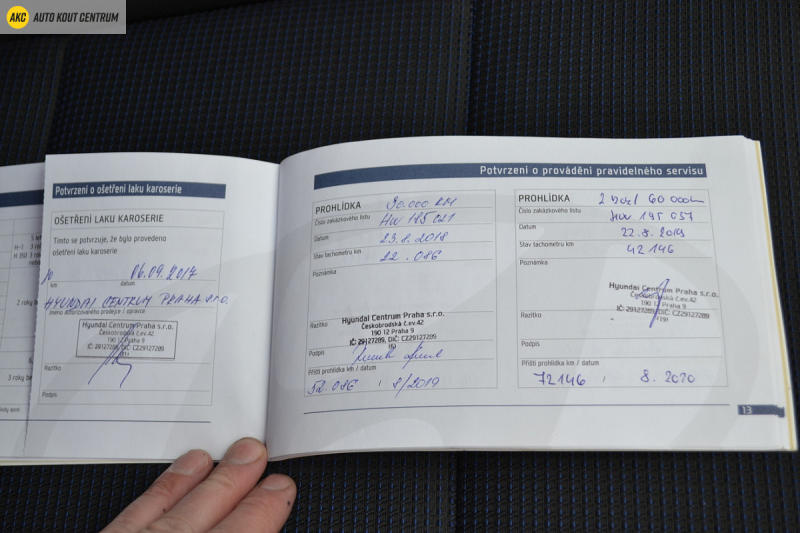 AKC AUTO KOUT CENTRUM
Potvrzení o ošetření laku karoserie
OŠETŘENÍ LAKU KAROSERIE
Tímto se potvrzuje, že bylo provedeno
ošetření laku karoserie
10 06.09.2017
km datum
HYUNDAI CENTRUM PRAHA s.r.o.
Jméno autorizovaného prodejce / opravce
Hyundai Centrum Praha s.r.o.
Českobrodská č.ev.42
190 12 Praha 9
IČ: 29127289, DIČ: CZ29127289
Razítko
Podpis
Potvrzení o provádění pravidelného servisu
PROHLÍDKA 30.000 KM
Číslo zakázkového listu HW 185021
Datum 23.8.2018
Stav tachometru km 22.086
Poznámka
Hyundai Centrum Praha s.r.o.
Českobrodská č.ev.42
190 12 Praha 9
IČ: 29127289, DIČ: CZ29127289
Razítko
Podpis
Příští prohlídka km / datum
52.086 / 8/2019
PROHLÍDKA 60 000km
Číslo zakázkového listu HW 195057
Datum 22.8.2019
Stav tachometru km 42146
Poznámka
Hyundai Centrum Praha s.r.o.
Českobrodská č.ev.42
190 12 Praha 9
IČ: 29127289, DIČ: CZ29127289
Razítko
Podpis
Příští prohlídka km / datum
72146 / 8.2020
13